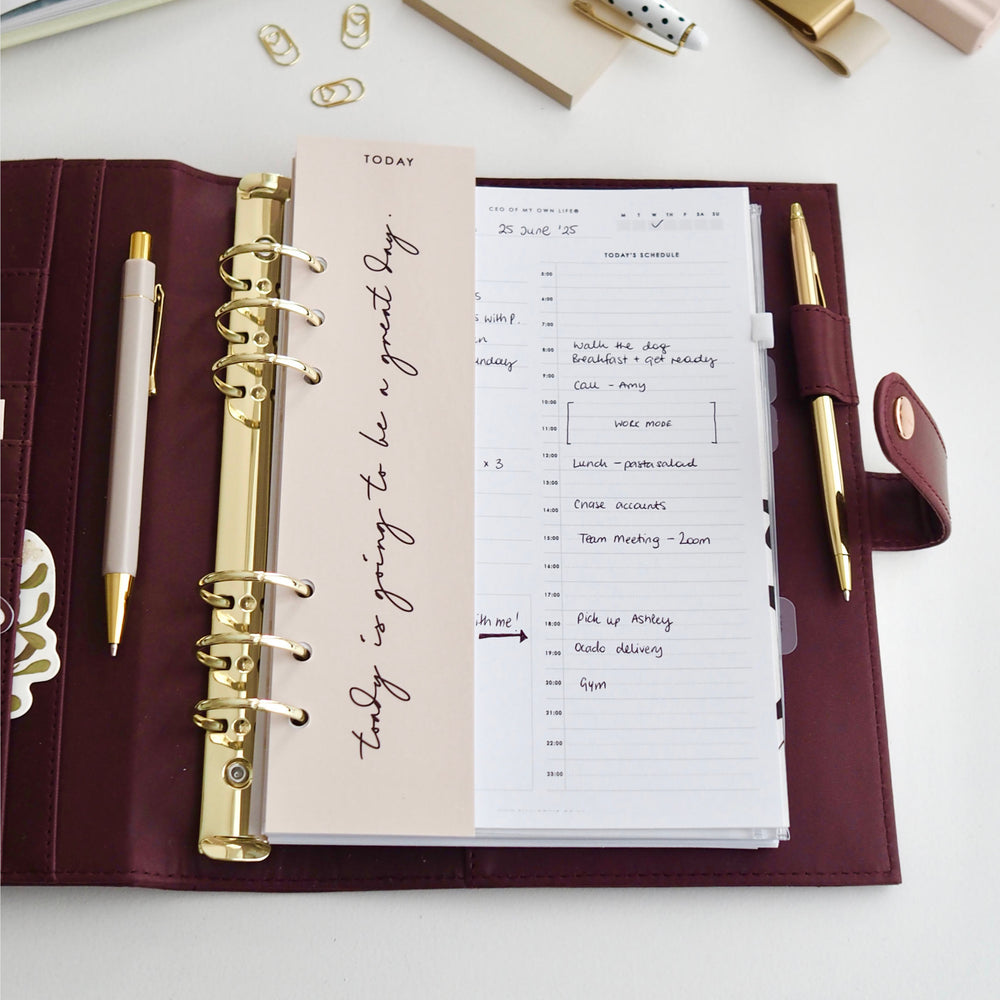 TODAY
today is going to be a great day.
CEO OF MY OWN LIFE®
M T W TH F SA SU
25 June '25
TODAY'S SCHEDULE
5:00
6:00
s with P.
7:00
8:00 Walk the dog
Breakfast + get ready
9:00 Call - Amy
10:00
11:00 WORK MODE
12:00 Lunch - pasta salad
x 3
13:00
14:00 Chase accounts
15:00 Team Meeting - Zoom
16:00
17:00
18:00 Pick up Ashley
with me!
19:00 Ocado delivery
20:00 Gym
21:00
22:00
23:00